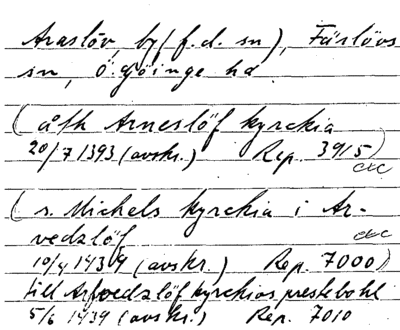 Araslöv, by (f.d. sn), Färlövs
sn, Ö. Göinge hd
(åth Arneslöf kyrckia
20/7 1393 (avskr.) Rep. 3915)
(s. Michels kyrckia i Ar-
vedzlöf
10/4 1439 (avskr.) Rep. 7000)
till Arfvedzlöf kyrckios prestebohl
5/6 1439 (avskr.) Rep. 7010